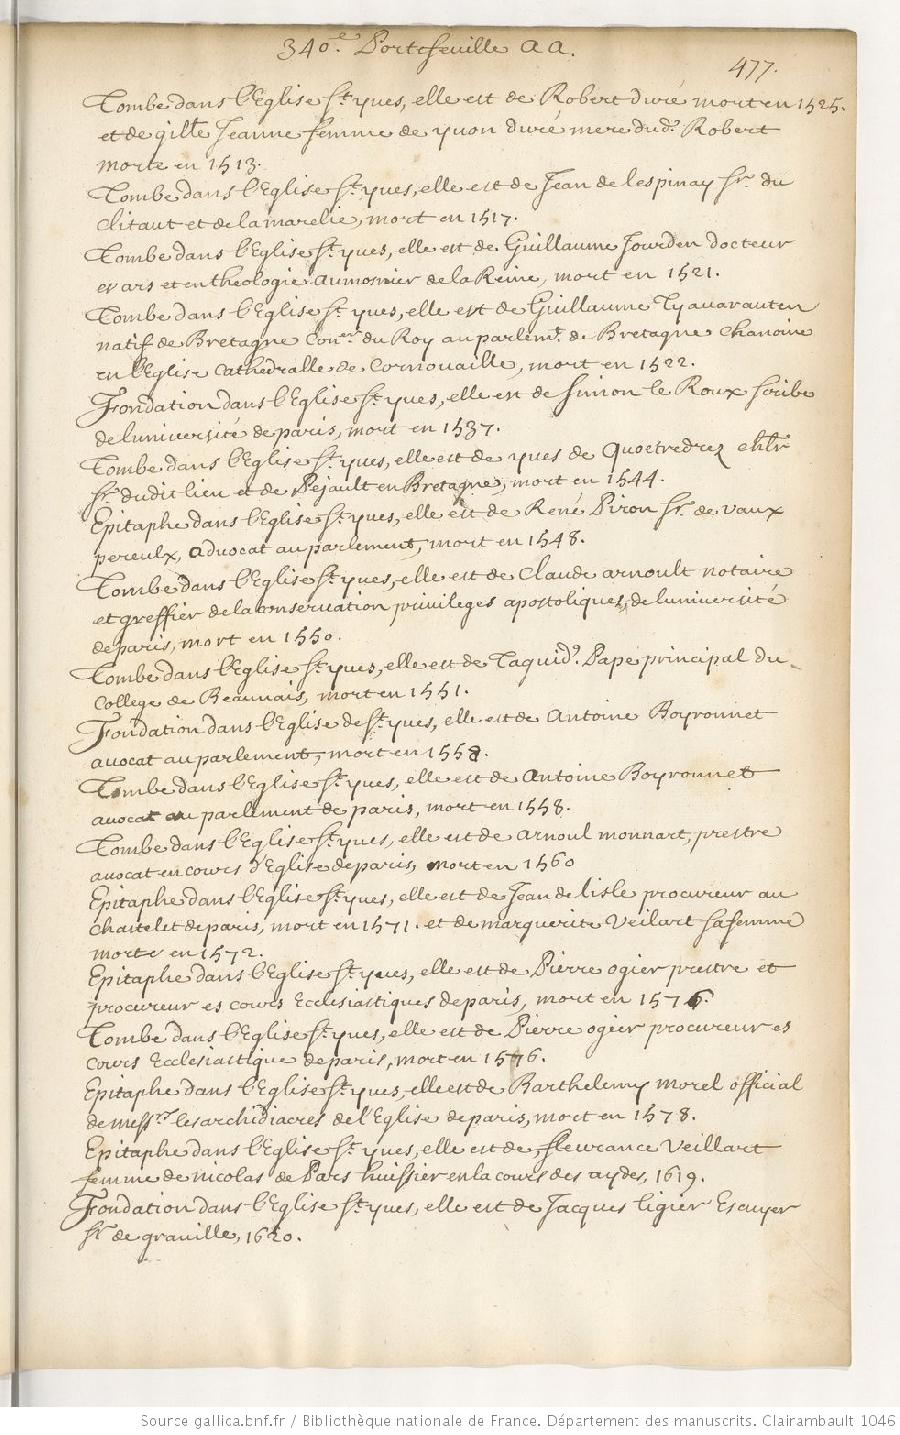 340.e Portefeuille a a.
477.
Tombe dans l'Eglise St. yves, elle est de Robert duré mort en 1525.
et de gille Jeanne femme de yvon duré mere dud. Robert
morte en 1513.
Tombe dans l'Eglise St. yves, elle est de Jean de lespinay Sr. du
Clitaut et de lamarelie, mort en 1517.
Tombe dans l'Eglise St. yves, elle est de Guillaume Jourden docteur
es ars et en theologie aumosnier de la Reine, mort en 1521.
Tombe dans l'Eglise St. yves, elle est de Guillaume
natif de Bretagne Coner. du Roy au parlemt. de Bretagne chanoine
en l'Eglise Cathedralle de Cornouaille, mort en 1522.
Fondation dans l'Eglise St. yves, elle est de Simon le Roux scribe
de luniversité de paris, mort en 1537.
Tombe dans l'Eglise St. yves, elle est de yves de Quoetredrez chlr
Sr. dudit lieu et de Pejault en Bretagne, mort en 1544.
Epitaphe dans l'Eglise St. yves, elle est de René Piron Sr. de vaux
pereulx, advocat au parlement, mort en 1548.
Tombe dans l'Eglise St. yves, elle est de Claude arnoult notaire
et greffier de la conservation privileges apostoliques de luniversité
de paris, mort en 1550.
Tombe dans l'Eglise St. yves, elle est de Pape principal du
College de Beauvais, mort en 1551.
Fondation dans l'Eglise de St. yves, elle est de antoine Boyronnet
avocat au parlement, mort en 1558.
Tombe dans l'Eglise St. yves, elle est de antoine Boyronnet
avocat au parlement de paris, mort en 1558.
Tombe dans l'Eglise St. yves, elle est de arnoul monnart, prestre
avocat en cours d'Eglise de paris, mort en 1560
Epitaphe dans l'Eglise St. yves, elle est de Jean de lisle procureur au
chastelet de paris, mort en 1571. et de marguerite Veilart sa femme
morte en 1572.
Epitaphe dans l'Eglise St. yves, elle est de Pierre ogier prestre et
procureur es cours Ecclesiastiques de paris, mort en 1576.
Tombe dans l'Eglise St. yves, elle est de Pierre ogier procureur es
cours Ecclesiastique de paris, mort en 1576.
Epitaphe dans l'Eglise St. yves, elle est de Barthelemy morel official
de messrs. les archidiacres de l'Eglise de paris, mort en 1578.
Epitaphe dans l'Eglise St. yves, elle est de fleurance Veillart
femme de nicolas de Pars huissier en la cours des aydes, 1619.
Fondation dans l'Eglise St. yves, elle est de Jacques ligier Escuyer
Sr. de graville, 1620.
Source gallica.bnf.fr / Bibliothèque nationale de France. Département des manuscrits. Clairambault 1046